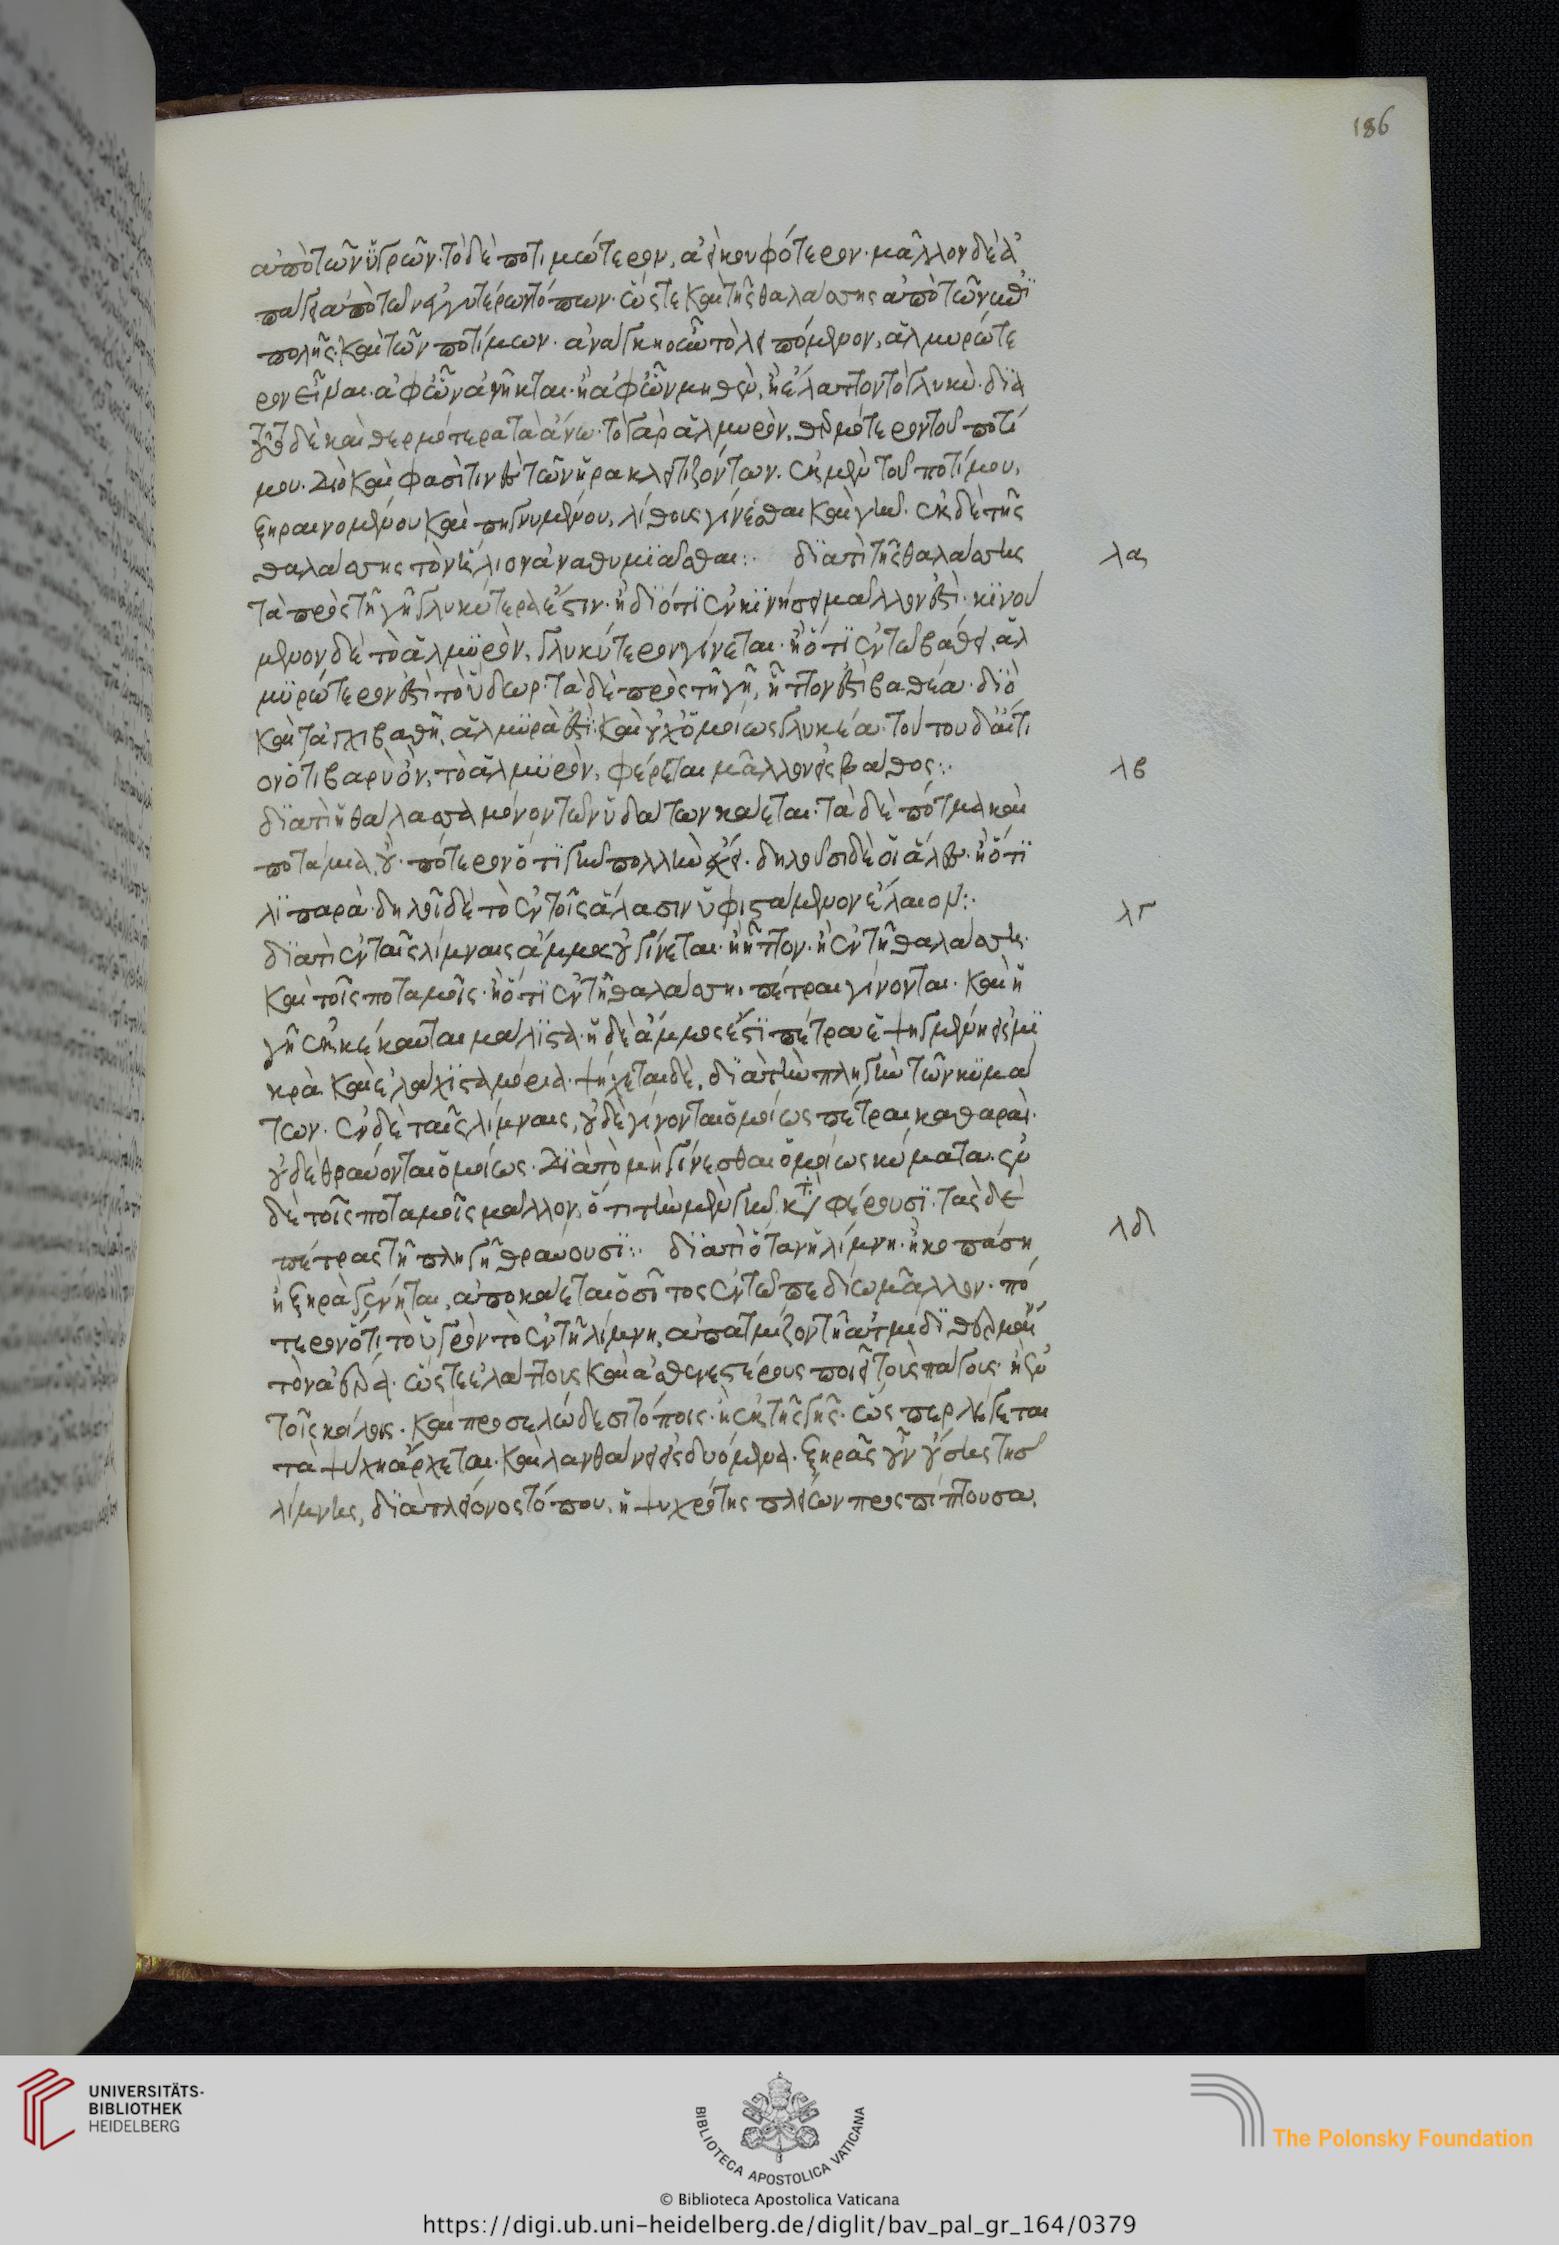 ἀπὸ τῶν ὑγρῶν· τὸ δὲ ποτιμώτερον, ἀεὶ κουφότερον· μᾶλλον δὲ ἀ
πάγει ἀπὸ τῶν ἐγγυτέρω τόπων· ὥστε καὶ τῆς θαλάσσης ἀπὸ τῶν ἐπι
πολῆς· καὶ τῶν ποτίμων· ἀνάγκη οὖν τὸ λειπόμενον, ἁλμυρώτε
ρον εἶναι· ἀφ ὧν ἀνῆκται· ἢ ἀφ ὧν μηθὲν, ἢ ἔλαττον τὸ γλυκὺ· διὰ
τοῦτο δὲ καὶ θερμότερα τὰ ἄνω· τὸ γὰρ ἁλμυρὸν, θερμότερον τοῦ ποτί
μου· Διὸ καὶ φασὶ τινες τῶν ἡρακλειτιζόντων· ἐκ μὲν τοῦ ποτίμου,
ξηραινομένου καὶ πηγνυμένου, λίθους γίνεσθαι καὶ γῆν· ἐκ δὲ τῆς
θαλάσσης τὸν ἥλιον ἀναθυμιᾶσθαι:· διατὶ τῆς θαλάσσης
λα
τὰ πρὸς τῇ γῇ γλυκύτερά ἐστιν· ἢ διότι ἐν κινήσει μᾶλλον ἐστὶ· κινού
μενον δὲ τὸ ἁλμυρὸν, γλυκύτερον γίνεται· ἢ ὅτι ἐν τῷ βάθει, ἁλ
μυρώτερον ἐστὶ τὸ ὕδωρ· τὰ δὲ πρὸς τῇ γῇ, ἧττον ἐστὶ βαθέα· διὸ
καὶ τὰ ἀγχιβαθῆ, ἁλμυρὰ ἐστὶ· καὶ οὐχ ὁμοίως γλυκέα· τούτου δ' αἴτι
ον ὅτι βαρὺ ὂν, τὸ ἁλμυρὸν, φέρεται μᾶλλον εἰς βάθος:·
λβ
διατὶ ἡ θάλασσα μόνον τῶν ὑδάτων κάεται· τὰ δὲ πότιμα καὶ
ποτάμια, οὐ· πότερον ὅτι γῆν πολλὴν ἔχει· δηλοῦσι δὲ οἱ ἅλες· ἢ ὅτι
λιπαρὰ· δηλοῖ δὲ τὸ ἐν τοῖς ἅλασιν ὑφιστάμενον ἔλαιον:·
λγ
διατὶ ἐν ταῖς λίμναις ἄμμος οὐ γίνεται· ἢ ἧττον· ἢ ἐν τῇ θαλάσσῃ·
καὶ τοῖς ποταμοῖς· ἢ ὅτι ἐν τῇ θαλάσσῃ, πέτραι γίνονται· καὶ ἡ
γῆ ἐκκέκαυται μάλιστα· ἡ δὲ ἄμμος ἐστὶ πέτρα ἐψηγμένη εἰς μι
κρὰ καὶ ἐλάχιστα μόρια· ψήχεται δὲ, διὰ τὴν πληγὴν τῶν κυμά
των· ἐν δὲ ταῖς λίμναις, οὐδὲ γίνονται ὁμοίως πέτραι καθαραὶ·
οὐδὲ θραύονται ὁμοίως· Διὰ τὸ μὴ γίνεσθαι ὁμοίως κύματα· ἐν
δὲ τοῖς ποταμοῖς μᾶλλον, ὅτι τὴν μὲν γῆν καταφέρουσι· τὰς δὲ
πέτρας τῇ πληγῇ θραύουσι:· διατὶ ὅταν ἡ λίμνη· ἢ κοπάσῃ
λδ
ἢ ξηρὰ γένηται, ἀποκάεται ὁ σῖτος ἐν τῷ πεδίῳ μᾶλλον· πό
τερον ὅτι τὸ ὑγρὸν τὸ ἐν τῇ λίμνῃ, ἀπατμίζον τῇ ἀτμίδι θερμαί
τὸν ἀέρα· ὥστε ἐλάττους καὶ ἀσθενεστέρους ποιεῖ τοὺς πάγους· ἢ ἐν
τοῖς κοίλοις· καὶ προσελώδεσι τόποις· ἢ ἐκ τῆς γῆς· ὥσπερ λέγεται
τὰ ψύχη ἄρχεται· καὶ λανθάνει εἰσδυόμενα· ξηρᾶς οὖν οὔσης τῆς
λίμνης, διὰ πλείονος τόπου, ἡ ψυχρότης πλείων προσπίπτουσα,
186
UNIVERSITÄTS-
BIBLIOTHEK
HEIDELBERG
BIBLIOTECA APOSTOLICA VATICANA
The Polonsky Foundation
© Biblioteca Apostolica Vaticana
https://digi.ub.uni-heidelberg.de/diglit/bav_pal_gr_164/0379